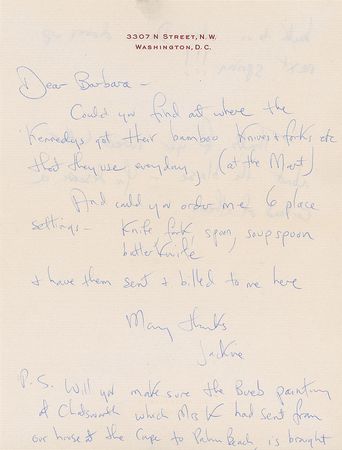 3307 N STREET, N.W.
WASHINGTON, D.C.
Dear Barbara -
Could you find out where the
Kennedys got their bamboo knives & forks etc
that they use everyday, (at the Mart)
And could you order me 6 place
settings - Knife fork, spoon, soupspoon
butter knife
& have them sent & billed to me here
Many thanks
Jackie
P.S. Will you make sure the painting
of Chatsworth which Mrs K had sent from
our house at the Cape to Palm Beach, is brought